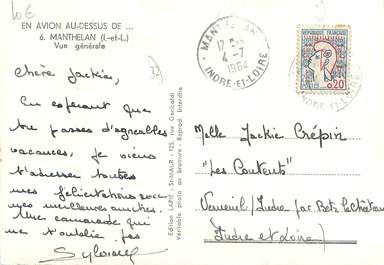 10€
EN AVION AU-DESSUS DE ...
6. MANTHELAN (I.-et-L.)
Vue générale
37
Chère Jackie,
En espérant que
tu passes d'agréables
vacances, je viens
t'adresser toutes
mes félicitations avec
mes meilleures amitiés.
Une camarade qui
ne t'oublie pas
Sylviane
Edition LAPIE - St-MAUR - 125, rue Garibaldi
Véritable photo au bromure - Reprod. Interdite
MANTHELAN
17 H
4 -7
1964
INDRE-ET-LOIRE
REPUBLIQUE FRANÇAISE
POSTES
0,20
Melle Jackie Crépin
"Les Coutents"
Verneuil / Indre par Betz le Château
(Indre et Loire)